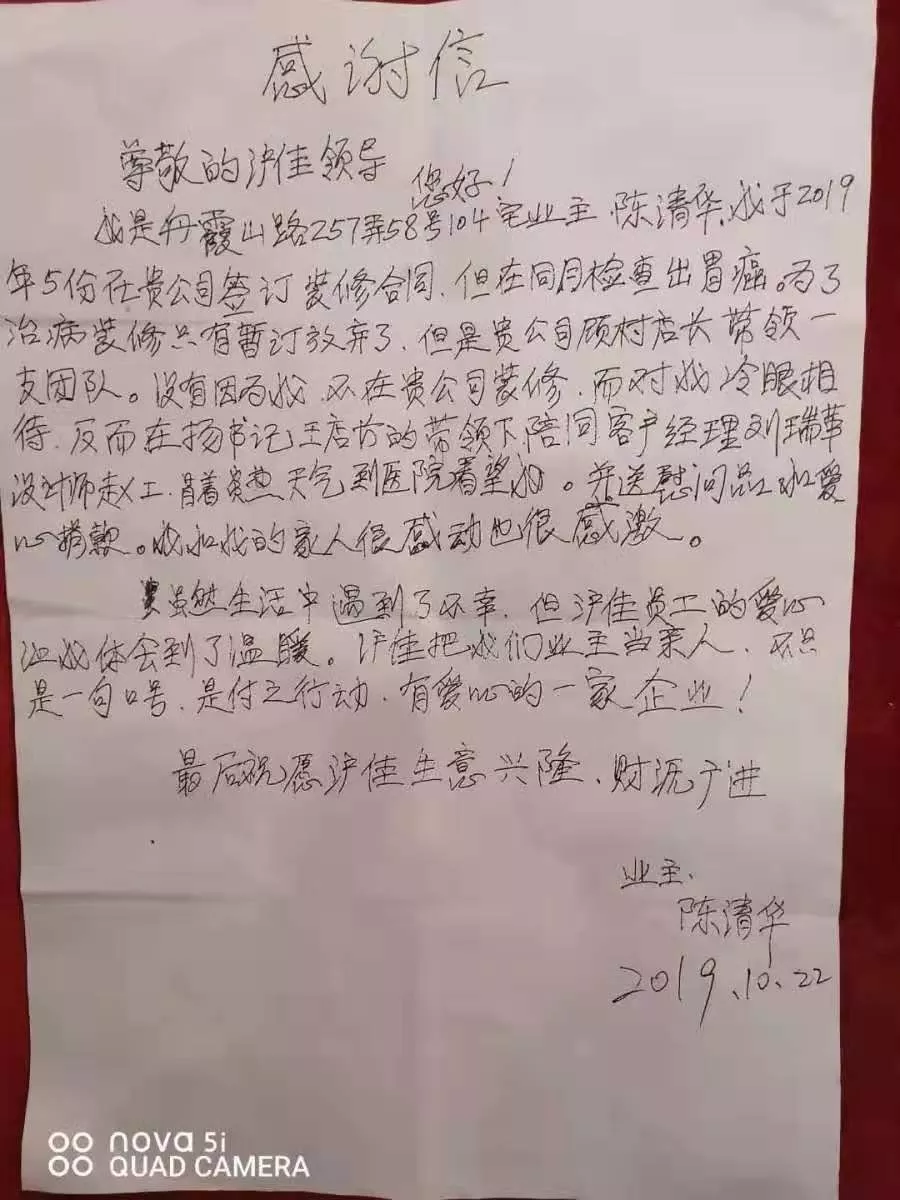 感谢信
尊敬的沪佳领导
您好！
我是丹霞山路257弄58号104室业主 陈清华，我于2019
年5份在贵公司签订 装修合同，但在同月检查出胃癌。为了
治病装修只有暂订放弃了，但是贵公司顾村店长 带领一
支团队。没有因为我，不在贵公司装修，而对我冷眼相
待，反而在杨书记王店长的带领下陪同客户经理刘瑞华
设计师赵工，冒着炎热天气到医院看望我。并送慰问品和爱
心捐款。我和我的家人很感动也很感激。
虽然生活中遇到了不幸，但沪佳员工的爱心
让我体会到了温暖。沪佳把我们业主当亲人，不只
是一句口号，是付之行动，有爱心的一家企业！
最后祝愿沪佳生意兴隆，财源广进
业主、
陈清华
2019、10、22
nova 5i
QUAD CAMERA